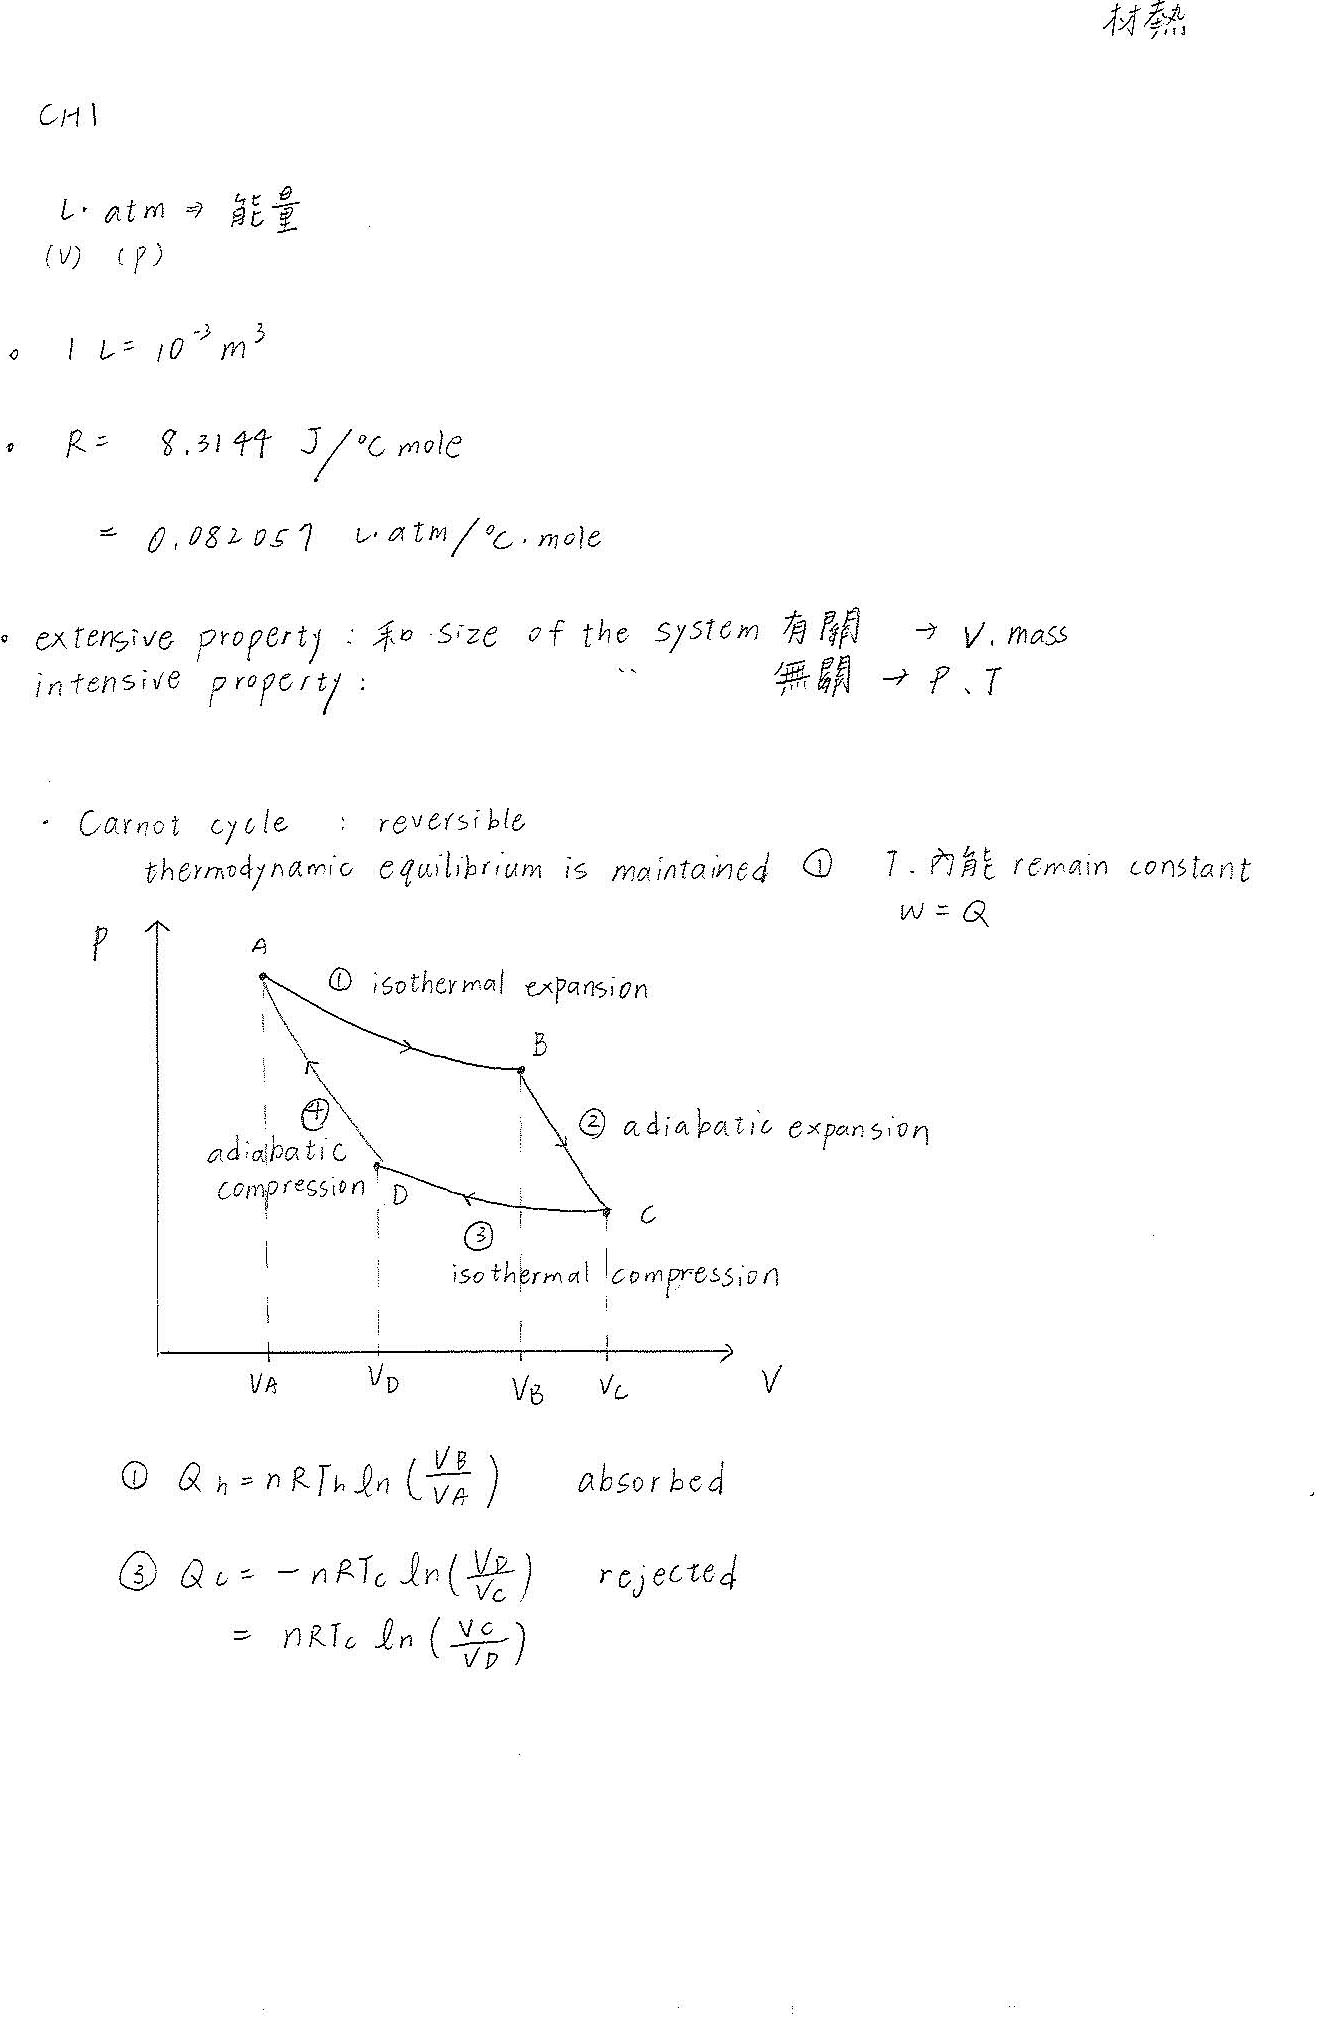 材熱
CH1
L. atm ⇒ 能量
(V) (P)
。 1 L = 10⁻³ m³
。 R = 8.3144 J/°C mole
= 0.082057 L.atm/°C.mole
。 extensive property : 和 size of the system 有關 → V. mass
intensive property : 〃 無關 → P、T
· Carnot cycle : reversible
thermodynamic equilibrium is maintained ① T. 內能 remain constant
W = Q
P
A
① isothermal expansion
B
② adiabatic expansion
④
adiabatic
compression
D
C
③
isothermal compression
VA VD VB VC V
① Qh = nRTh ln (VB/VA) absorbed
③ Qc = - nRTc ln (VD/VC) rejected
= nRTc ln (VC/VD)